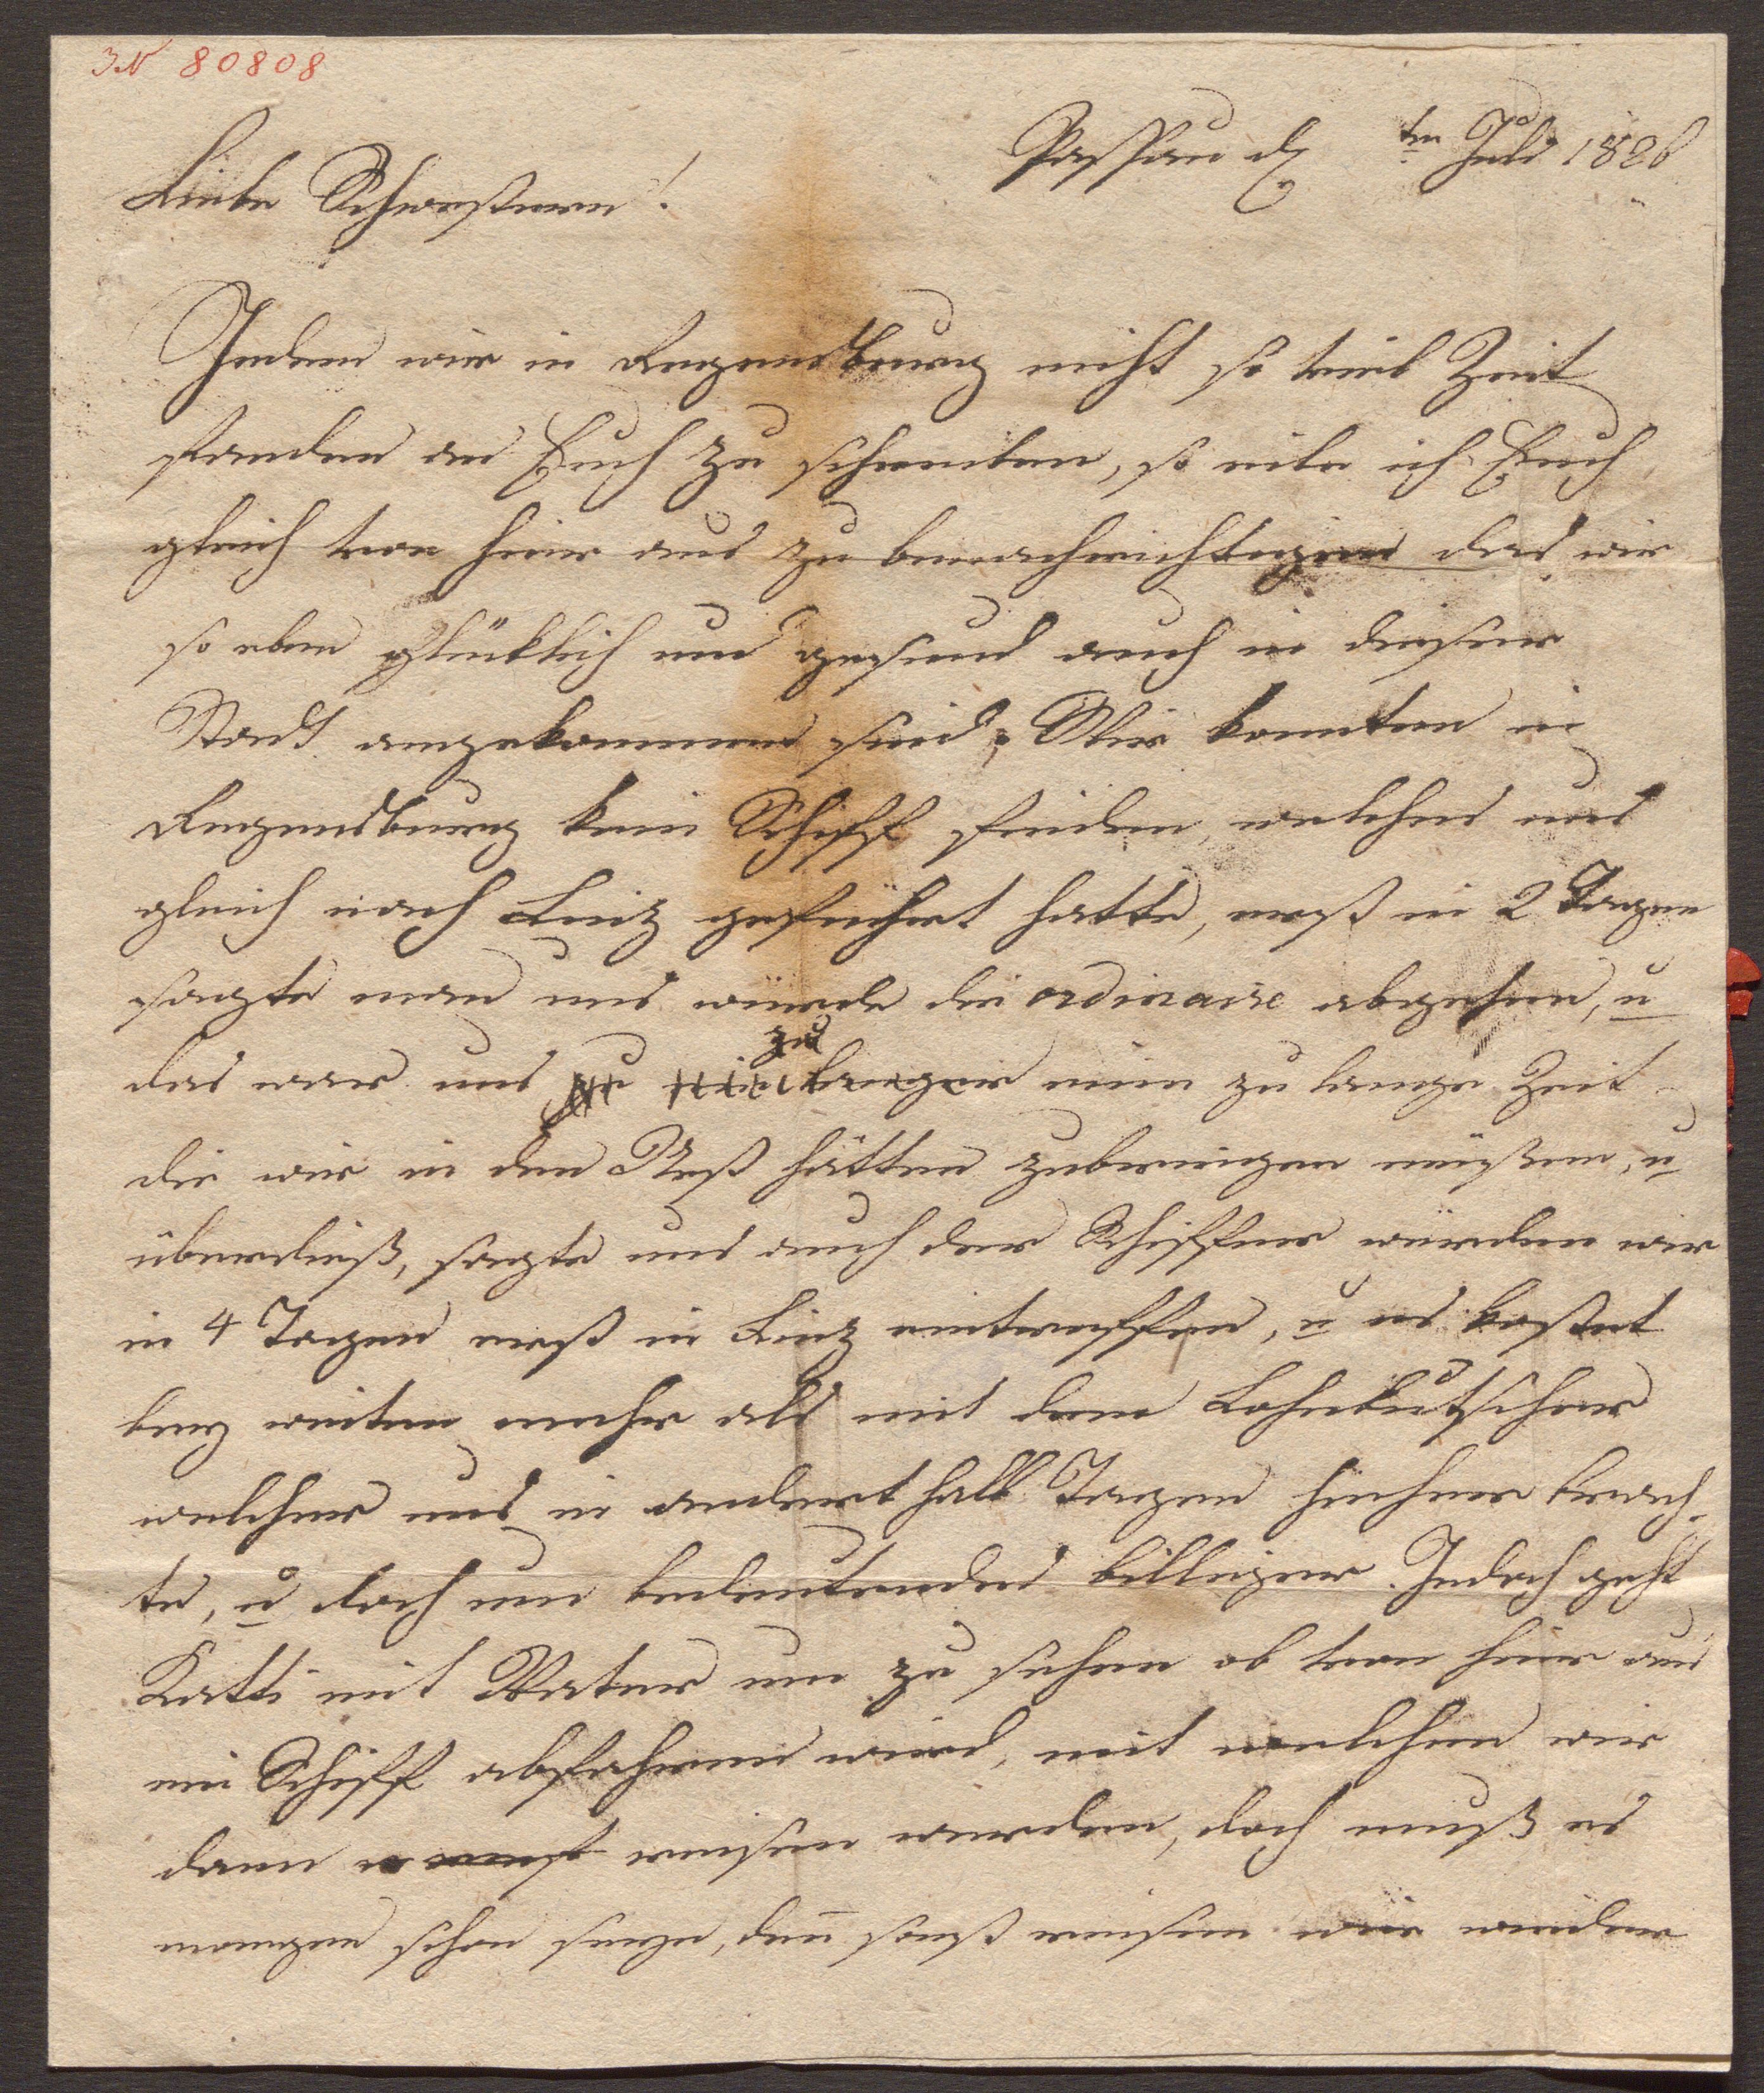 JN 80808
Passau d ten Juli 1826
Liebe Schwestern!
Indem wir in Regensburg nicht so viel Zeit
fanden an Euch zu schreiben, so eile ich Euch
gleich von hier aus zu benachrichtigen das wir
so eben glücklich und gesund auch in dieser
Stadt angekommen sind. Wir konnten in
Regensburg kein Schiff finden, welches uns
gleich nach Linz geführt hatte, erst in 2 Tagen
sagte man uns würde die ordinaire abgehen, u
das war uns zu eine zu lange Zeit
die wir in den Nest hätten zubringen müßen, u
überdieß, sagte uns auch der Schiffer würden wir
in 4 Tagen erst in Linz eintreffen, u es kostet
bey weiten mehr als mit dem Lohnkutscher
welcher uns in andert halb Tagen hieher brach-
te, u doch um bedeutendes billiger. Jedoch geht
Katti mit Vater um zu sehen ob von hier aus
ein Schiff abfahren wird, mit welchen wir
dann reisen werden, doch muß es
morgen schon seyn, den̄ sonst reisen wir wieder